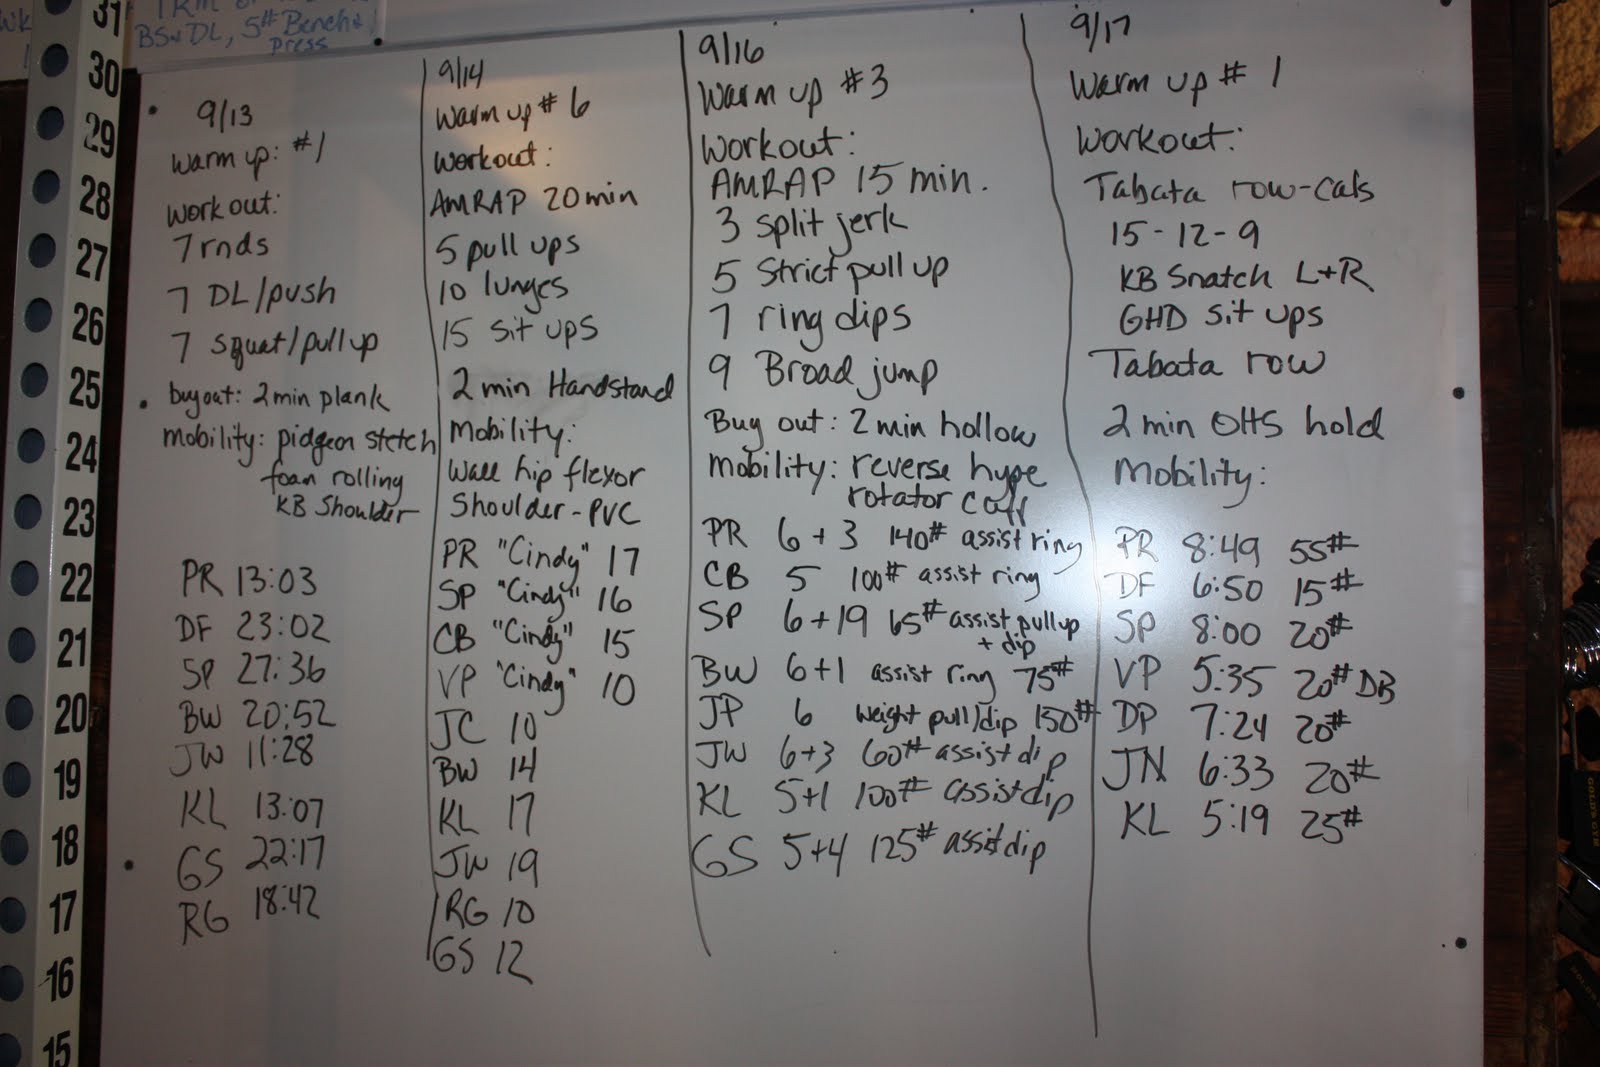 31
30
29
28
27
26
25
24
23
22
21
20
19
18
17
16
15
BS+DL, 5# Bench+
press
9/13
Warm up: #1
Workout:
7 rnds
7 DL/push
7 squat/pull up
buy out: 2 min plank
mobility: pidgeon stetch
foam rolling
KB Shoulder
PR 13:03
DF 23:02
SP 27:36
BW 20:52
JW 11:28
KL 13:07
GS 22:17
RG 18:42
9/14
Warm up # 6
Workout:
AMRAP 20 min
5 pull ups
10 lunges
15 sit ups
2 min Handstand
Mobility:
Wall hip flexor
Shoulder - PVC
PR "Cindy" 17
SP "Cindy" 16
CB "Cindy" 15
VP "Cindy" 10
JC 10
BW 14
KL 17
JW 19
RG 10
GS 12
9/16
Warm up #3
Workout:
AMRAP 15 min.
3 split jerk
5 Strict pull up
7 ring dips
9 Broad jump
Buy out: 2 min hollow
Mobility: reverse hype
rotator cuff
PR 6+3 140# assist ring
CB 5 100# assist ring
SP 6+19 65# assist pullup
+ dip
BW 6+1 assist ring 75#
JP 6 weight pull/dip 150#
JW 6+3 60# assist dip
KL 5+1 100# assist dip
GS 5+4 125# assist dip
9/17
Warm up # 1
Workout:
Tabata row-cals
15-12-9
KB Snatch L+R
GHD sit ups
Tabata row
2 min OHS hold
Mobility:
PR 8:49 55#
DF 6:50 15#
SP 8:00 20#
VP 5:35 20# DB
DP 7:24 20#
JN 6:33 20#
KL 5:19 25#